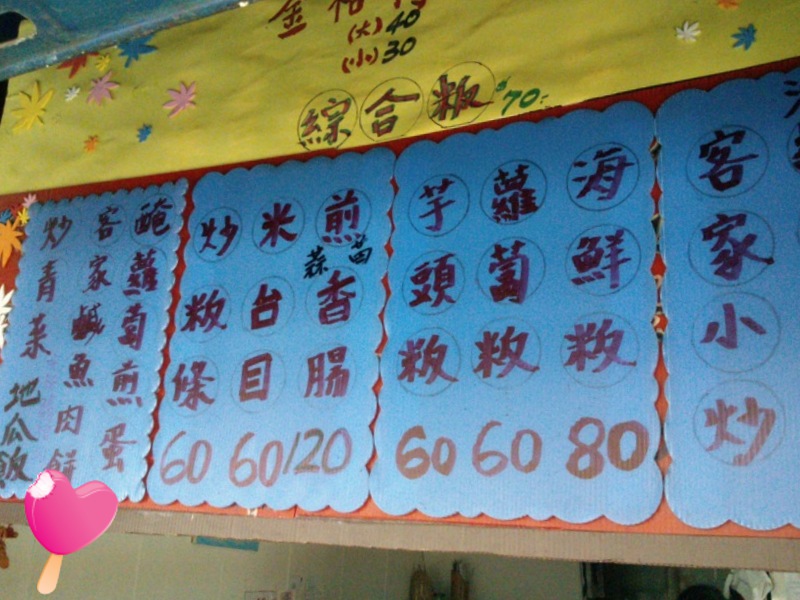 金桔
(大)40
(小)30
綜合粄 $70
客家小炒
海鮮粄 80
蘿蔔粄 60
芋頭粄 60
煎香腸 120
蒜苗
米台目 60
炒粄條 60
醃蘿蔔煎蛋
客家鹹魚肉餅
炒青菜
地瓜飯